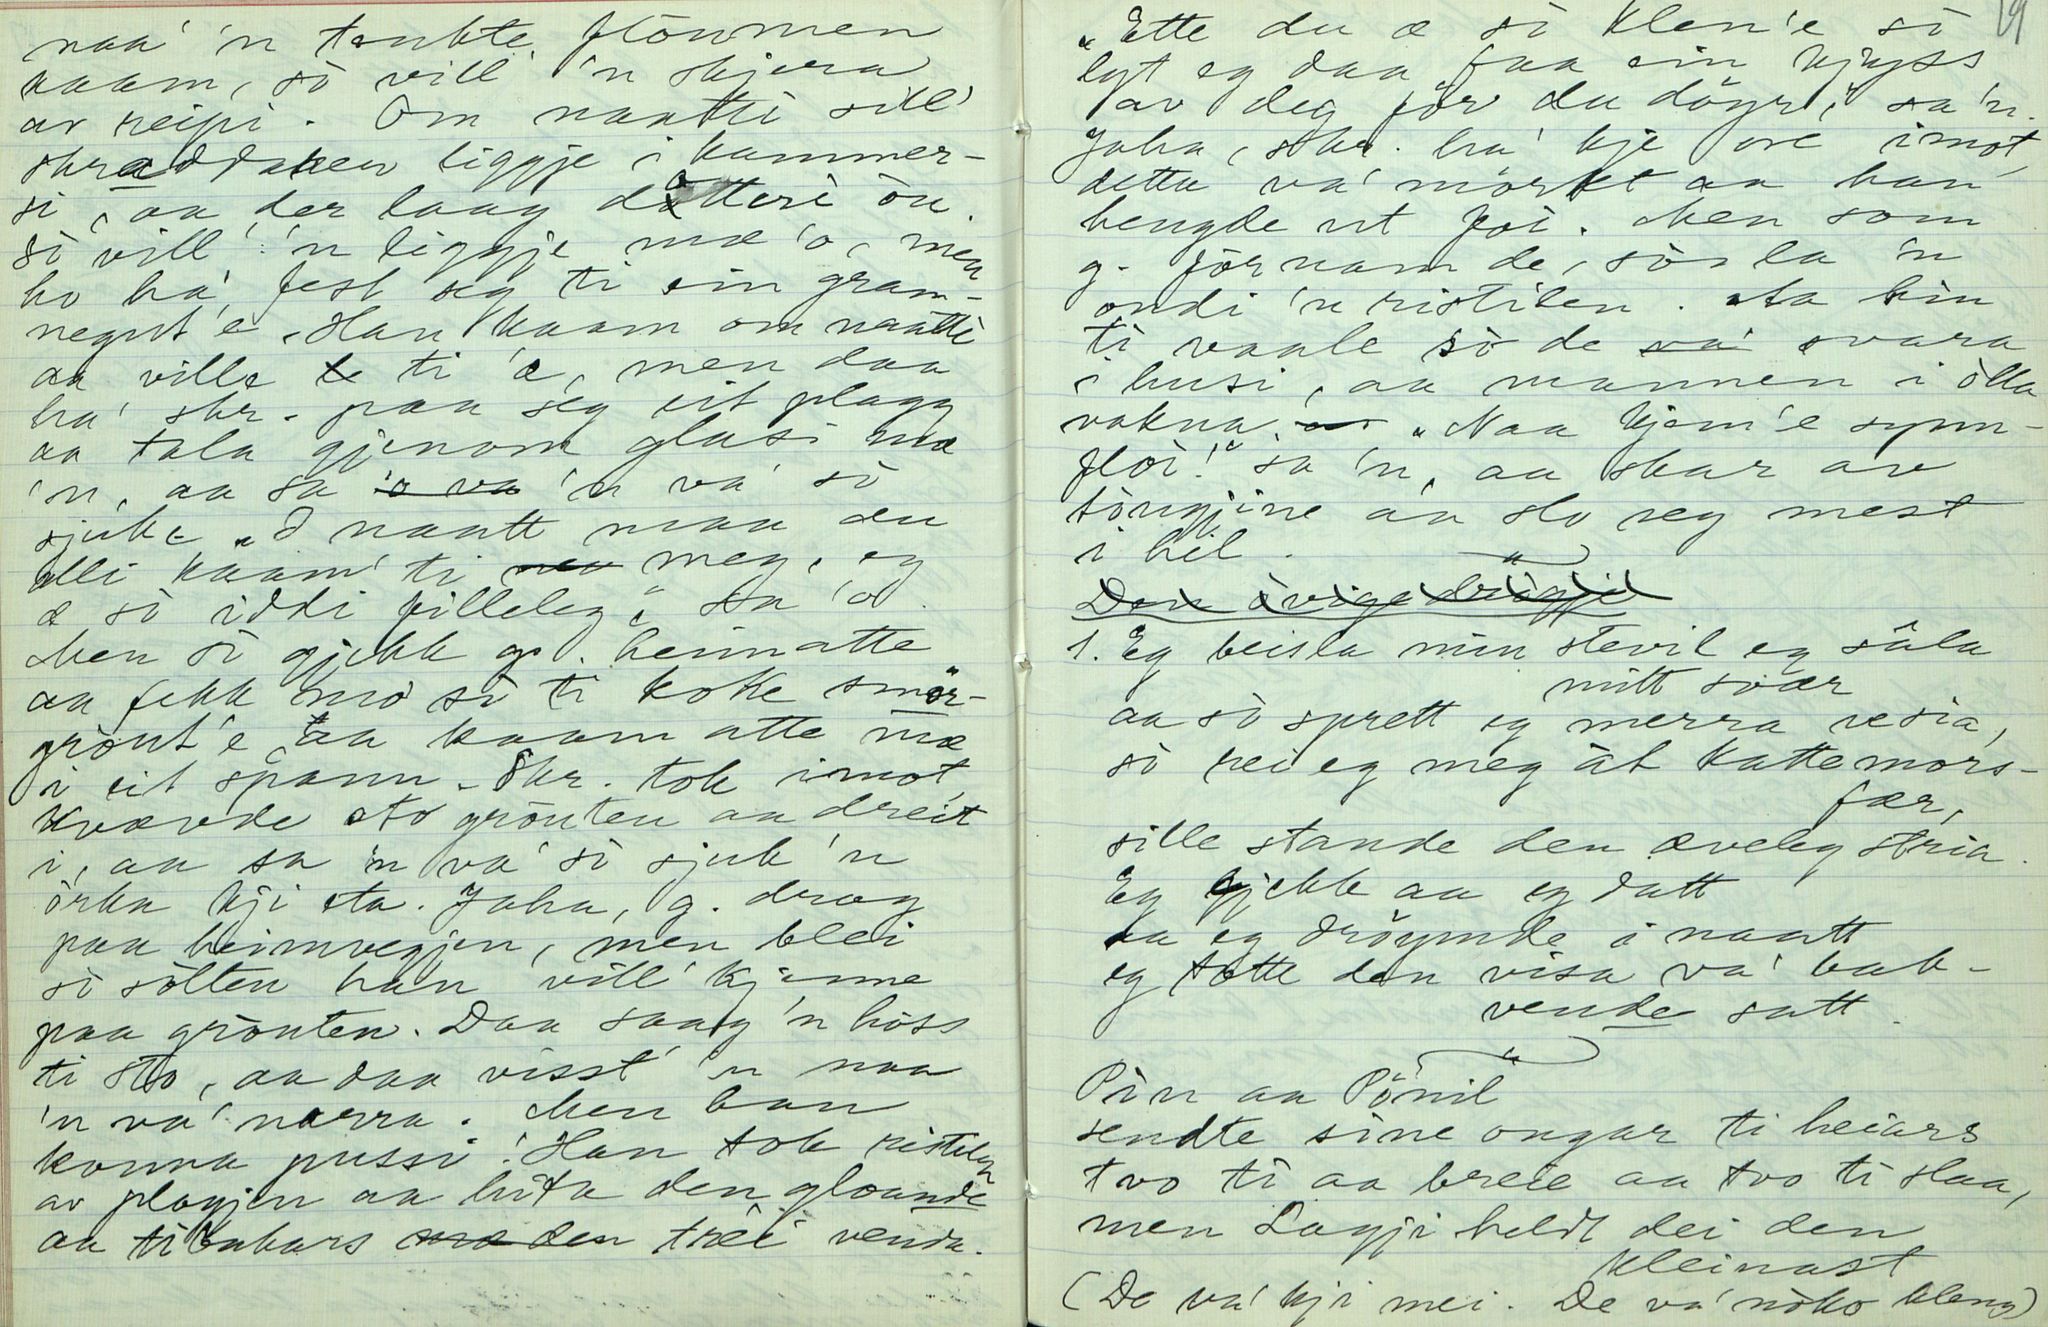 naa' 'n tenkte flòummen
kaam, sò vill' 'n skjera
av reipi. Om naatti sill'
skraddaren liggje i kammer-
si, aa der laag dòtteri òu.
Sò vill' 'n liggje mæ 'o, men
ho ha' fest seg ti ein gram-
negut'e. Han kaam om naatti
aa ville ti 'æ, men daa
ha' skr. paa seg eit plagg
aa tala gjenom glasi mæ
'n, aa sa 'n va' sò
sjuk. „I naatt maa du
alli kaam' ti meg, eg
æ sò iddi filleleg," sa 'o.
Men sò gjekk g. heimatte
aa fekk mo si ti koke smör-
gròut'e, aa kaam atte mæ
i eit spann. Skr. tok imot,
kvævde av gròuten aa dreit
i, aa sa 'n va' sò sjuk 'n
örka kji eta. Jaha, g. drog
paa heimvegjen, men blei
sò sòlten han vill' kjenne
paa gròuten. Daa saag 'n hòss
ti sto, aa daa visst' 'n naa
'n va' narra. Men han
konna pussi! Han tok ristilen
av plogjen aa hita den gloande
aa tibakars den trèi venda.
19
„Ette du æ sò klen'e sò
lyt eg daa faa ein kjyss
av deg för du döyr," sa 'n.
Jaha, skr. ha' kje ore imot,
detta va' mörkt aa han
hengde ut foi. Men som
g. förnam de, sò la 'n
ondi 'n ristilen. Aa hin
ti vaale sò de svara
i husi, aa mannen i ölla
vakna. „Naa kjem'e synn-
flòi!" sa 'n, aa skar av
tòugjine aa slo seg mest
i hel.
1. Eg beisla min stevil eg sála
mitt svær
aa sò sprett eg merra ve sia,
sò rei eg meg át kattemors-
fær,
sille stande den æveleg stria.
Eg gjekk aa eg datt
aa eg dröymde i naatt
eg totte den visa va' bak-
vende satt.
Pin aa Pönil
sendte sine ongar ti heiars
tvo ti aa breie aa tvo ti slaa,
men Lagji heldt dei den
kleinast
(De va' kji mei. De va' nòko kleng)